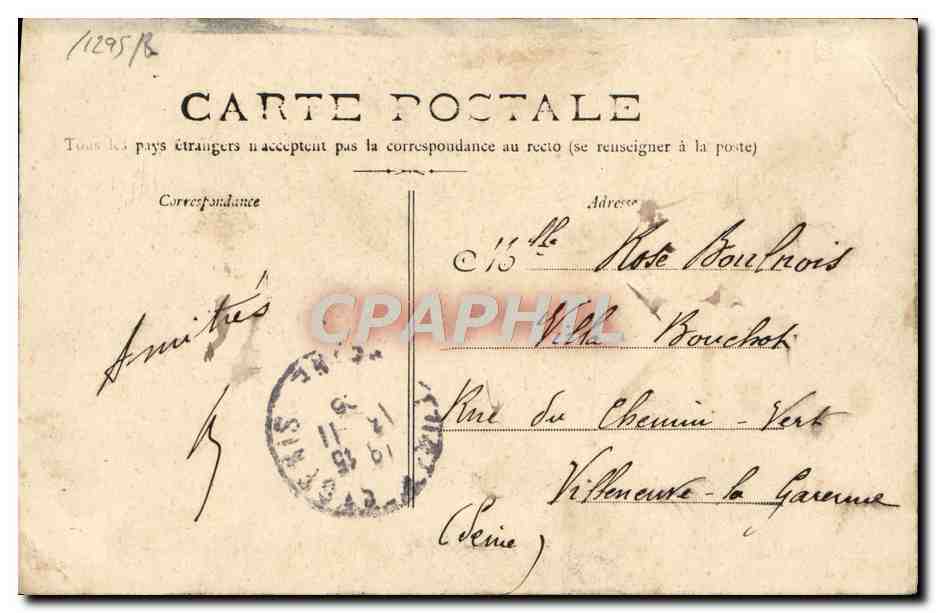 1295/B
CARTE POSTALE
Tous les pays étrangers n'acceptent pas la correspondance au recto (se renseigner à la poste)
Correspondance
Adresse
Mlle Rose Boulnois
Amitiés
CPAPHIL.COM
Villa Bouchot
Rue du Chemin-Vert
Villeneuve-la Garenne
(Seine)